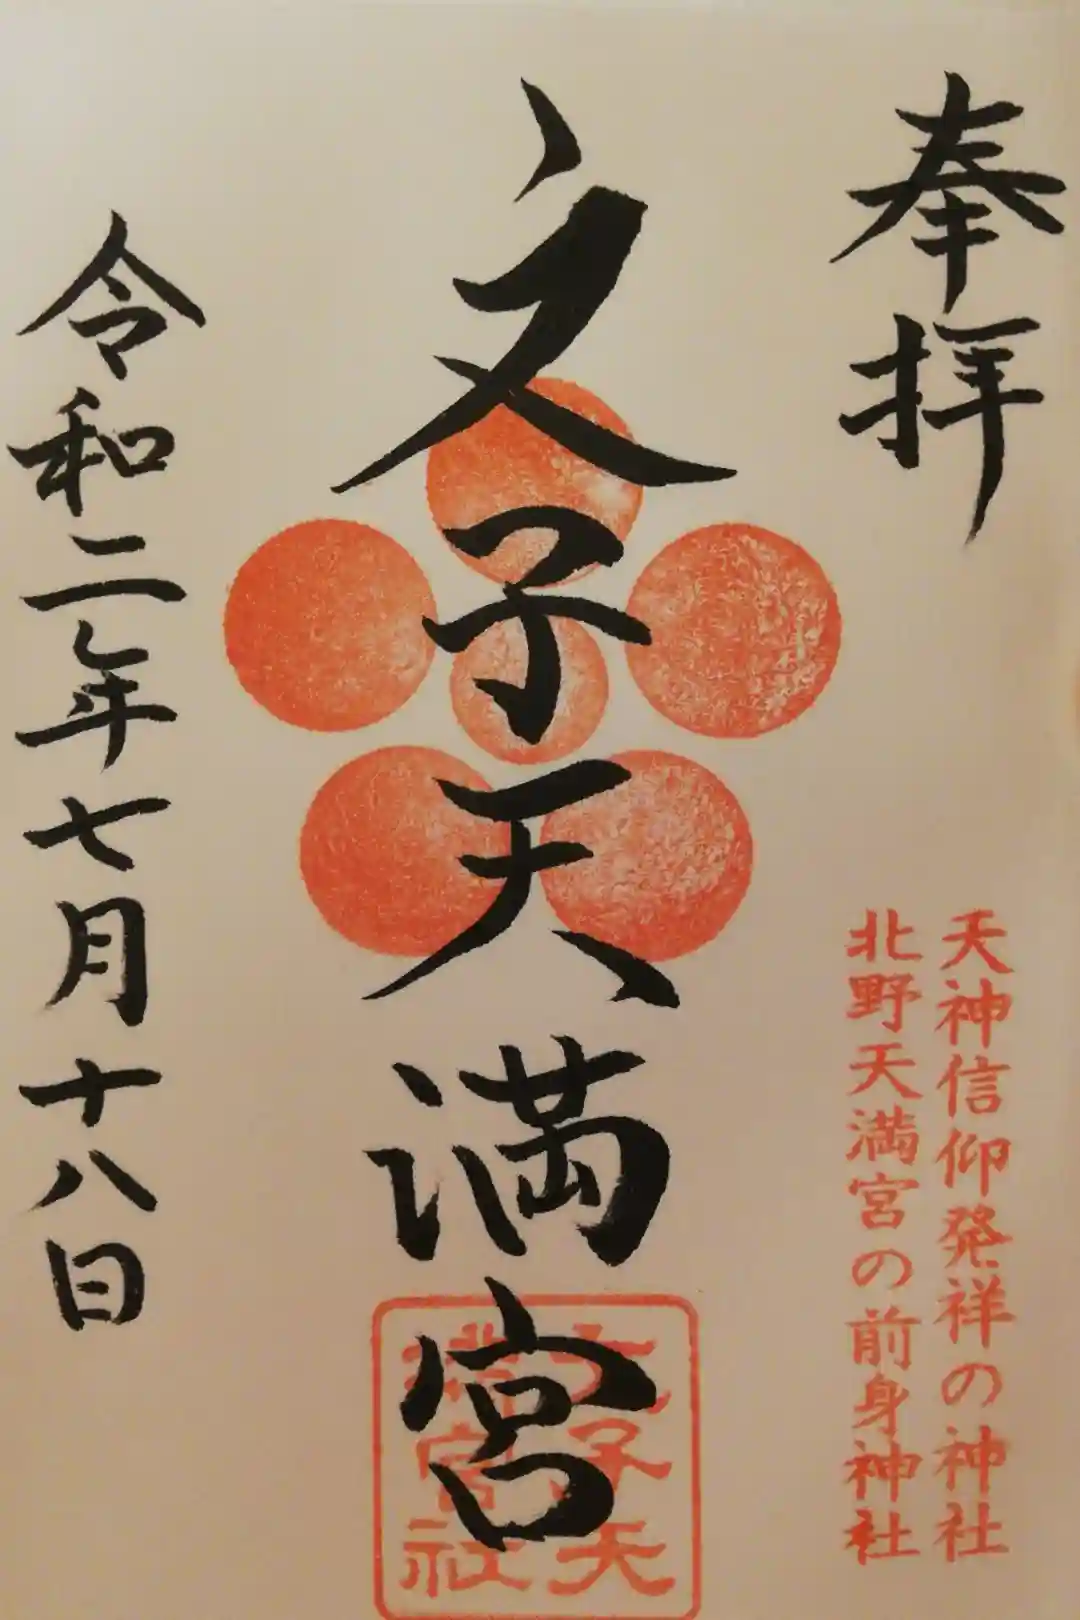 奉拝
天神信仰発祥の神社
北野天満宮の前身神社
文子天満宮
文子天
満宮社
令和二年七月十八日